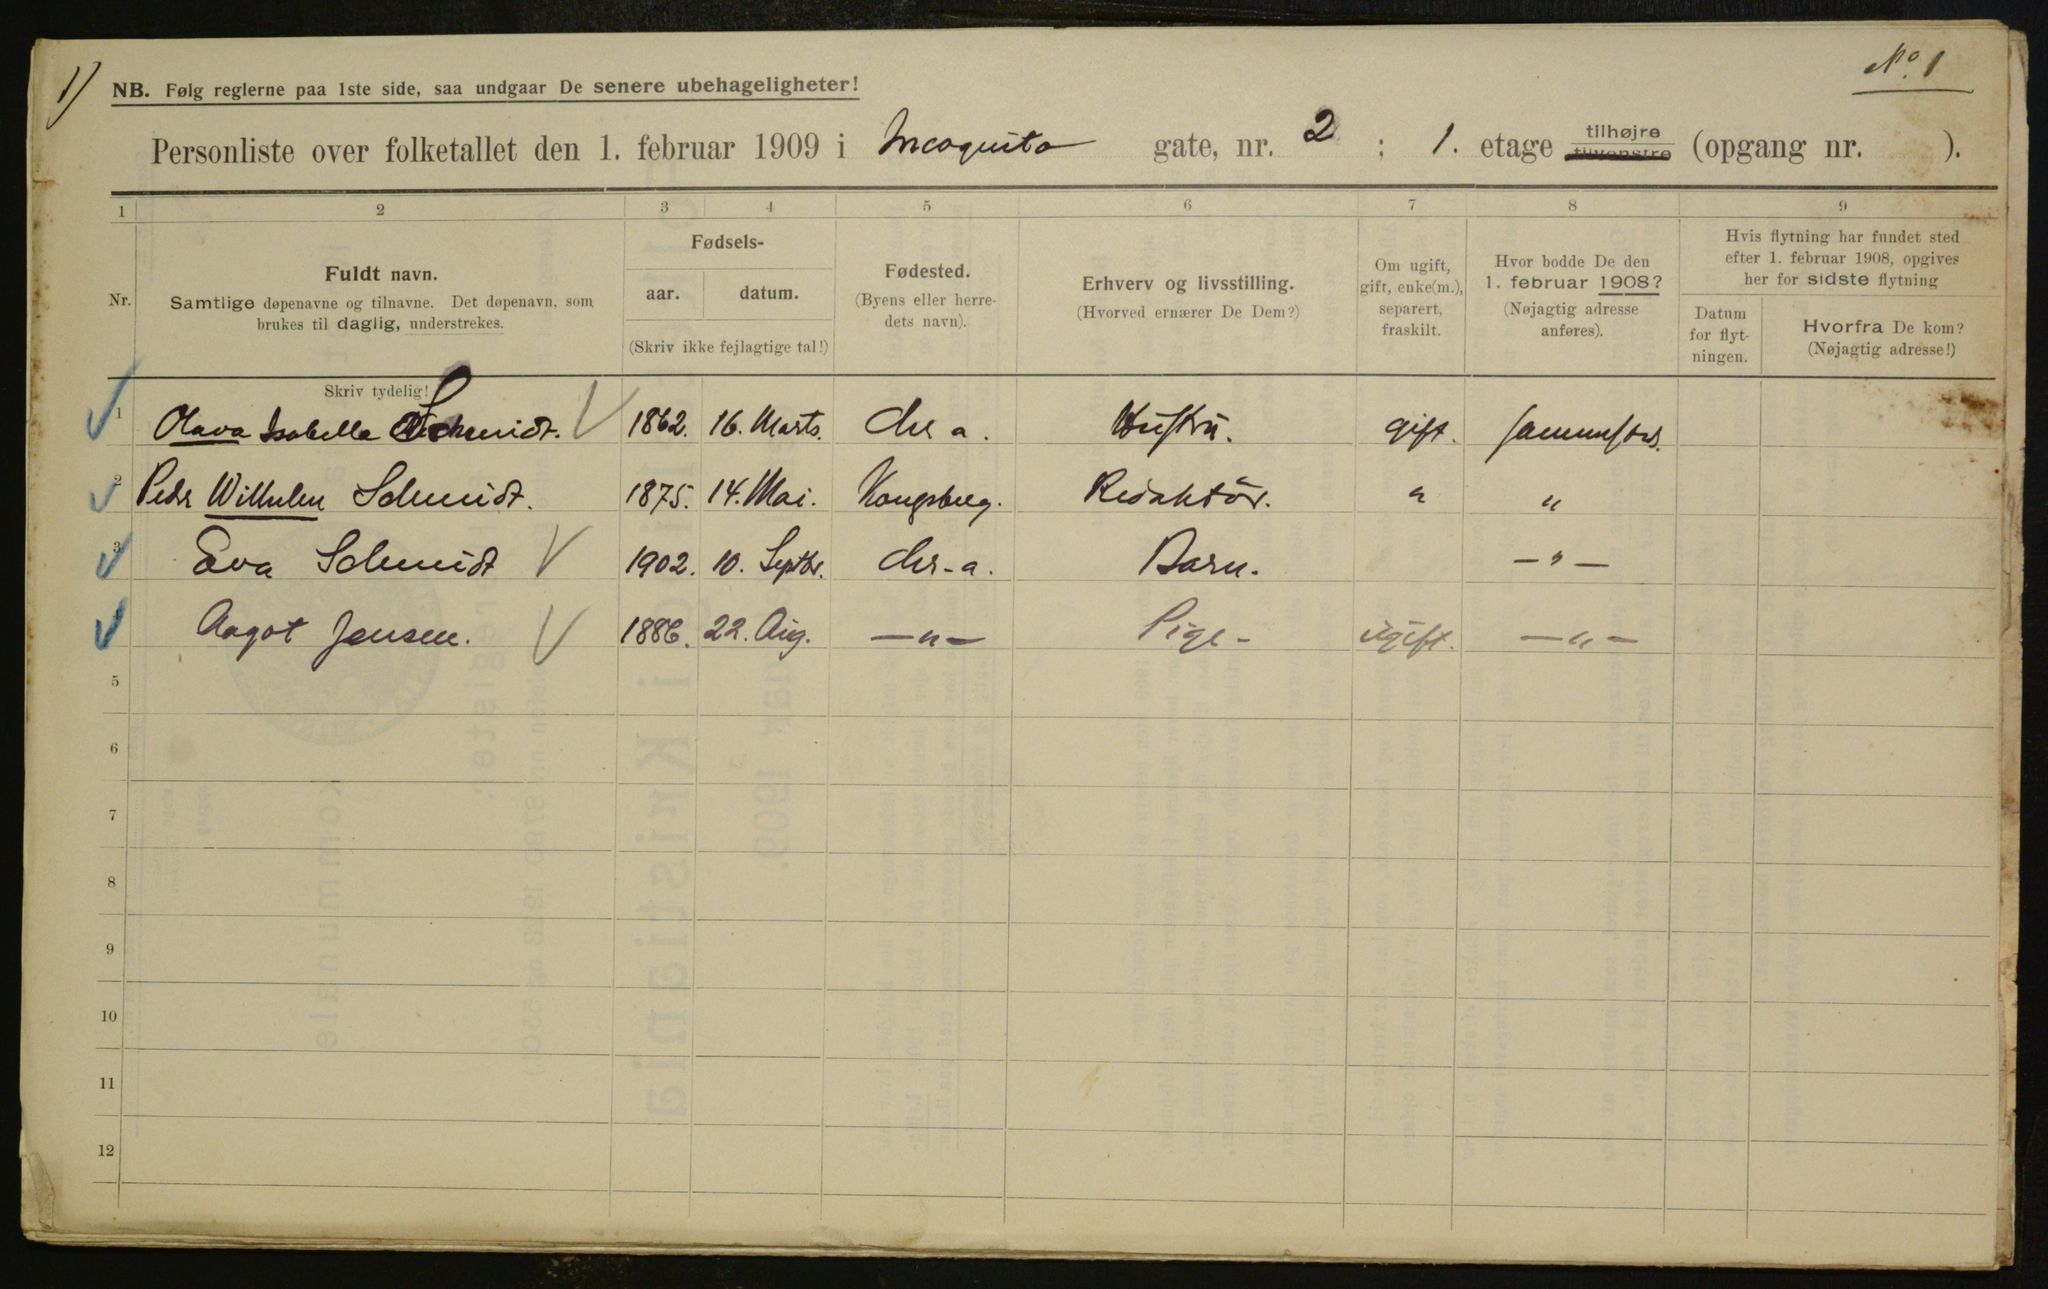 1) NB. Følg reglerne paa 1ste side, saa undgaar De senere ubehageligheter! No. 1
Personliste over folketallet den 1. februar 1909 i Incognito gate, nr. 2 ; 1. etage tilhøjre tilvenstre (opgang nr. ).
1 2 3 4 5 6 7 8 9
Nr.
Fuldt navn.
Samtlige døpenavne og tilnavne. Det døpenavn, som
brukes til daglig, understrekes.
Fødsels-
aar. datum.
(Skriv ikke fejlagtige tal!)
Fødested.
(Byens eller herre-
dets navn).
Erhverv og livsstilling.
(Hvorved ernærer De Dem?)
Om ugift,
gift, enke(m.),
separert,
fraskilt.
Hvor bodde De den
1. februar 1908?
(Nøjagtig adresse
anføres).
Hvis flytning har fundet sted
efter 1. februar 1908, opgives
her for sidste flytning
Datum
for flyt-
ningen.
Hvorfra De kom?
(Nøjagtig adresse!)
Skriv tydelig!
1 Olava Isabella Schmidt. 1862. 16. Marts. Chr a. Hustru. gift. sammesteds.
2 Peder Wilhelm Schmidt. 1875. 14. Mai. Kongsberg. Redaktör. " "
3 Eva Schmidt 1902. 10. Septbr. Chr-a. Barn. — " —
Aagot Jensen. 1886. 22. Aug. — " — Pige - ugift. — " —
5
6
7
8
9
10
11
12